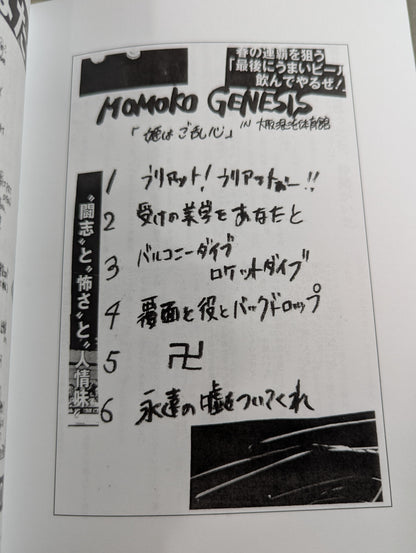 春の連覇を狙う
「最後にうまいビール
飲んでやるぜ!
MOMOKO GENESIS
IN 大阪 体育館
1 ラリアット! ラリアットぉー!!
2 受けの美学をあなたと
3 バルコニーダイブ
ロケットダイブ
4 覆面と役とバックドロップ
5 卍
6 永遠の嘘をついてくれ
"闘志"と"怖さ"と"人情味"